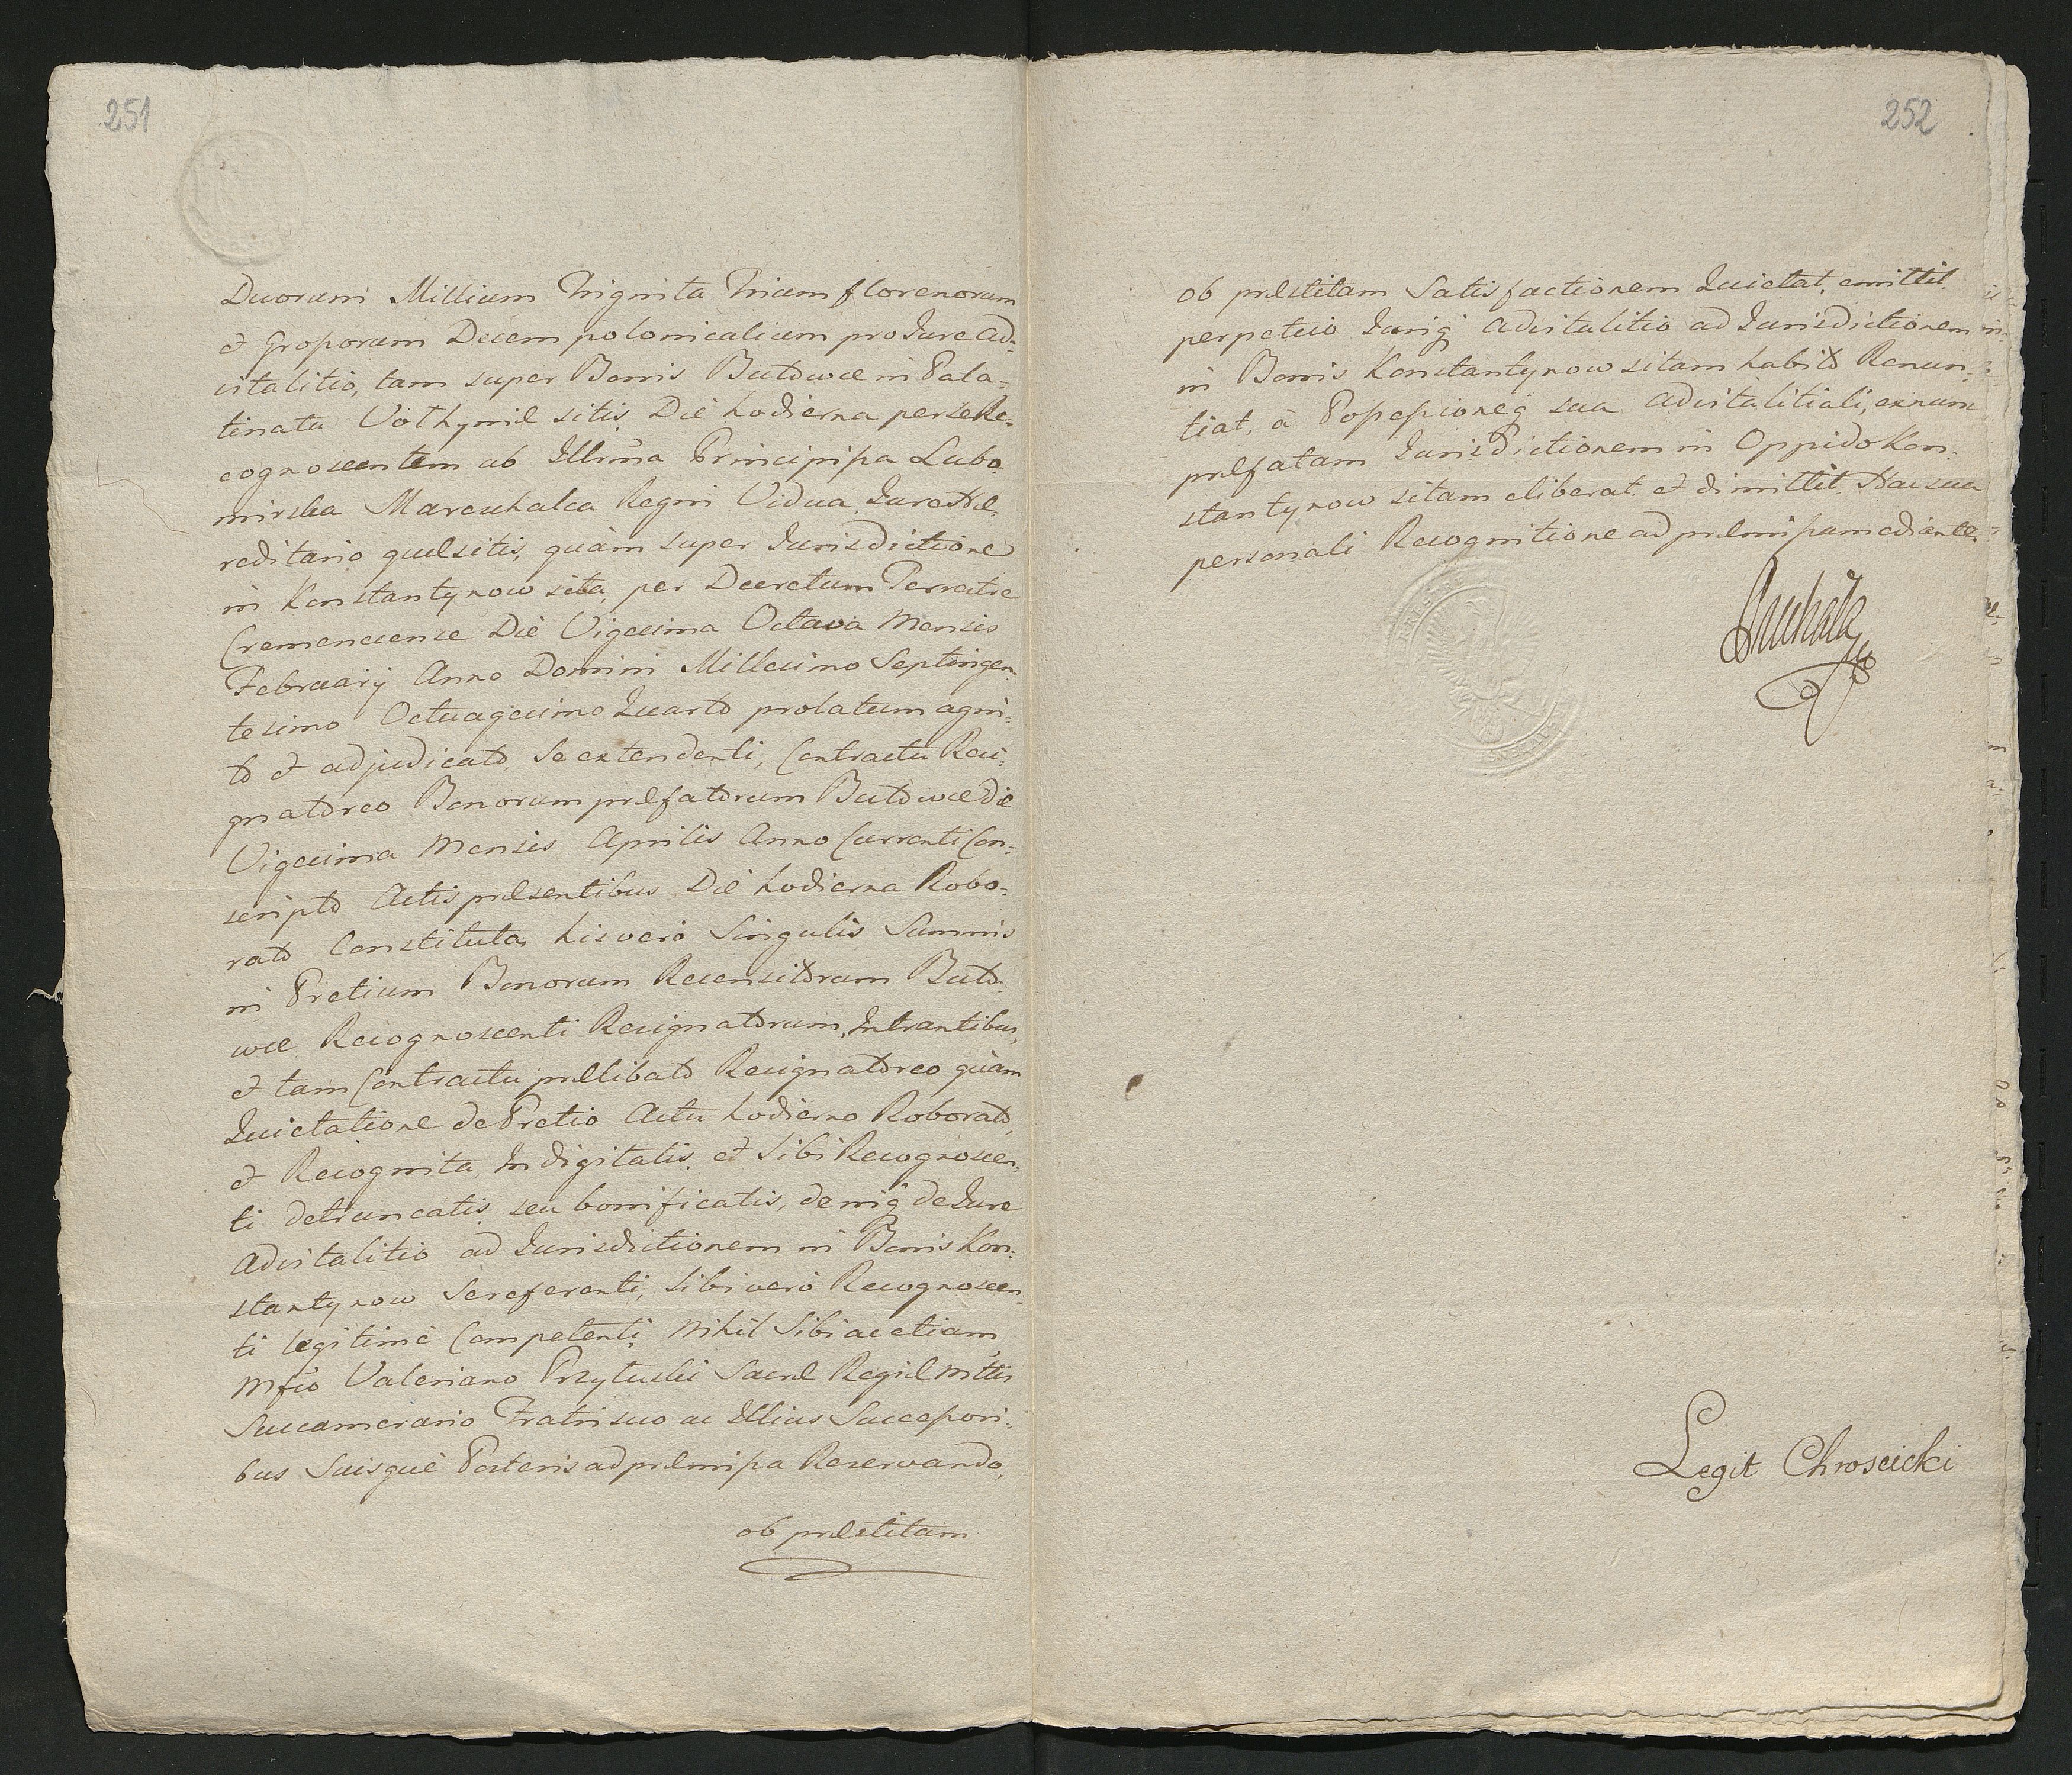 251
Duorum Millium Triginta Trium florenorum
et Grossorum Decem polonicalium pro Jure ad-
vitalitio, tam super Bonis Butowce in Pala-
tinatu Volhyniæ sitis, Die hodierna per se Re-
cognoscentem ab Illrma Principissa Lubo-
mirska Mareschalca Regni Vidua, Jure Hæ-
reditario quæsitis, quàm super Jurisdictione
in Konstantynow sita, per Decretum Terrestre
Cremenecense Die Vigesima Octava Mensis
February Anno Domini Millesimo Septingen-
tesimo Octuagesimo Quarto prolatum agni-
to et adjudicato, Se extendenti, Contractu Resi-
gnatoreo Bonorum præfatorum Butowce die
Vigesima Mensis Aprilis Anno Currenti Con-
scripto Actis præsentibus Die hodierna Robo-
rato Constituta, his vero Singulis Summis
in Pretium Bonorum Recensitorum Buto-
wce Recognoscenti Resignatorum, Intrantibus,
et tam Contractu prælibato Resignatoreo quàm
Quietatione de Pretio Actu hodierno Roborato,
et Recognita, Indigitatis, et Sibi Recognoscen-
ti detruncatis seu bonificatis, deniq de Jure
Advitalitio ad Jurisdictionem in Bonis Kon-
stantynow Se referenti, Sibi verò Recognoscen-
ti legitimè Competenti, Nihil Sibi ac etiam
Mfico Valeriano Przyłuski Sacræ Regiæ Mttis
Succamerario Fratri suo ac Illius Successori-
bus Suisquè Posteris ad præmissa Reservando,
ob præstitam
252
ob præstitam Satisfactionem Quietat, emittit,
perpetuo Juriq Advitalitio ad Jurisdictionem
in Bonis Konstantynow sitam habito Renun-
tiat, à Possessioneq sua advitalitiali, eanum
præfatam Jurisdictionem in Oppido Kon-
stantynow sitam eliberat et dimittit. Hac sua
personali Recognitione ad præmissa mediante.
Legit Chroscicki